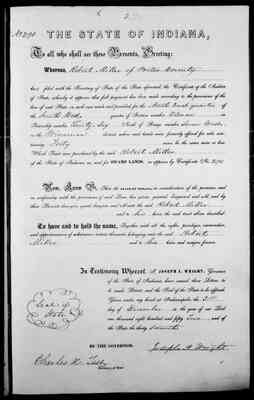 No 2190
THE STATE OF INDIANA,
To all who shall see these Presents, Greeting:
Whereas, Robert Miller of Porter County
has filed with the Secretary of State of the State aforesaid, the Certificate of the Auditor
of State, whereby it appears that full payment has been made according to the provisions of the
law of said State in such case made and provided for the North East quarter of
the South West quarter of Section number Fifteen in
Township number Thirty
in the Winamac
Forty acres more or less
Which Tract was purchased by the said Robert Miller
of the State of Indiana, as and for SWAMP LANDS, as appears by Certificate No. 2190
Now, Know Ye, That the STATE OF INDIANA, in consideration of the premises, and
in conformity with the provisions of said Laws, has given, granted, bargained and sold, and by
these Presents does give, grant, bargain and sell unto the said Robert Miller
and to his heirs the said tract above described
To have and to hold the same, Together with all the rights, privileges, immunities,
and appurtenances of whatsoever nature thereunto belonging unto the said Robert
Miller and to his heirs and assigns forever.
In Testimony Whereof, I, JOSEPH A. WRIGHT, Governor
of the State of Indiana, have caused these Letters to
be made Patent, and the Seal of the State to be affixed.
Given under my hand at Indianapolis, the
day of December in the year of our Lord
one thousand eight hundred and fifty and of
the State the thirty seventh
Seal of
State
BY THE GOVERNOR.
Joseph A. Wright
Charles H. Test
Secretary of State